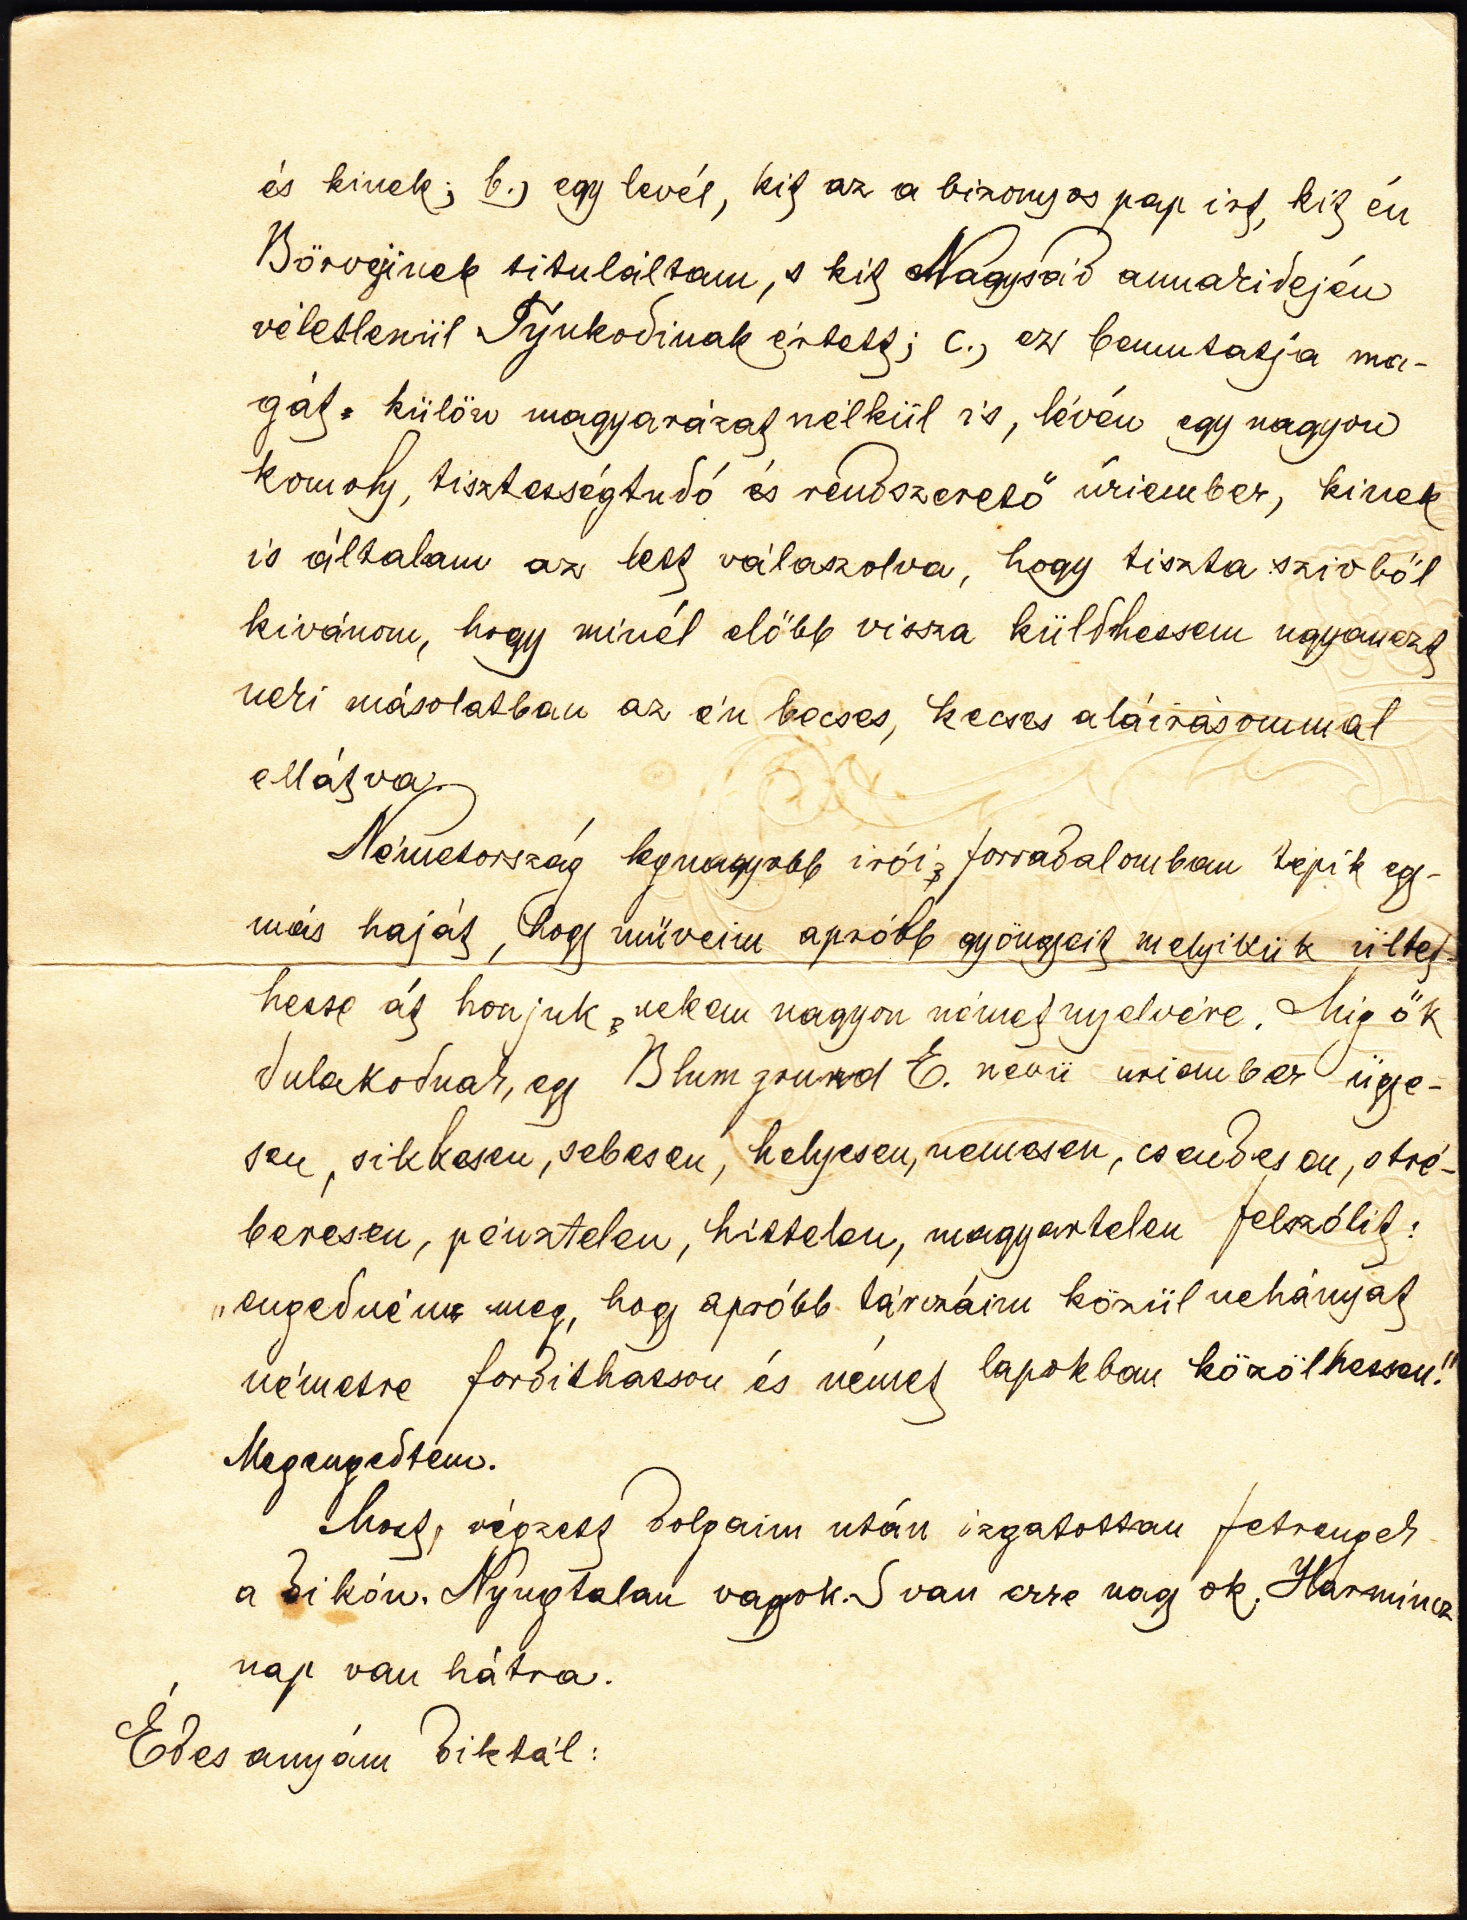 és kinek; b.) egy levél, kit az a bizonyos pap irt, kit én
Börvejinek tituláltam, s kit Nagysád annakidején
véletlenül Tyukodinak értett; c.) ez bemutatja ma-
gát külön magyarázat nélkül is, lévén egy nagyon
komoly, tisztességtudó és rendszerető úriember, kinek
is általam az lett válaszolva, hogy tiszta szivből
kivánom, hogy minél előbb vissza küldhessem ugyanezt
neki másolatban az én becses, kecses aláirásommal
ellátva.
Németország legnagyobb irói forradalomban tépik egy-
más haját, hogy műveim apróbb gyöngyeit melyikük ültet-
hesse át honjuk nekem nagyon német nyelvére. Mig ők
dulakodnak, egy Blumgrund E. nevü uriember ügye-
sen, sikkesen, sebesen, helyesen, nemesen, csendesen, stré-
beresen, pénztelen, hittelen, magyartelen felszólit:
„engedném meg, hogy apróbb tárczáim közül nehányat
németre fordithasson és német lapokban közölhessen!"
Megengedtem.
Most, végzett dolgaim után izgatottan fetrengek
a dikón. Nyugtalan vagyok. S van erre nagy ok. Harmincz
nap van hátra.
Édes anyám diktál: